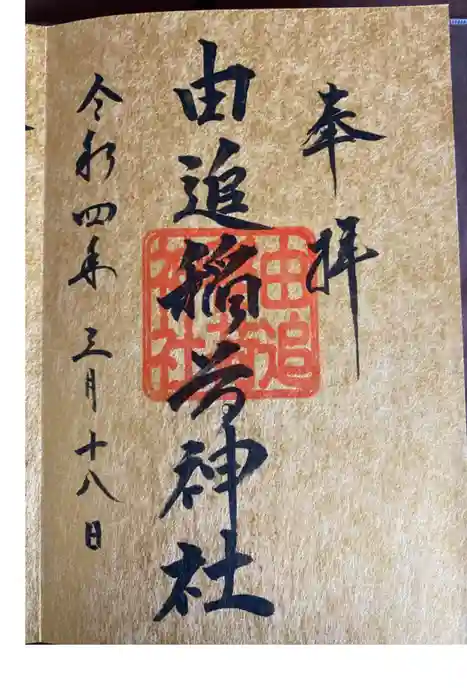 奉拝
由追稲荷神社
令和四年三月十八日
由追稲荷神社